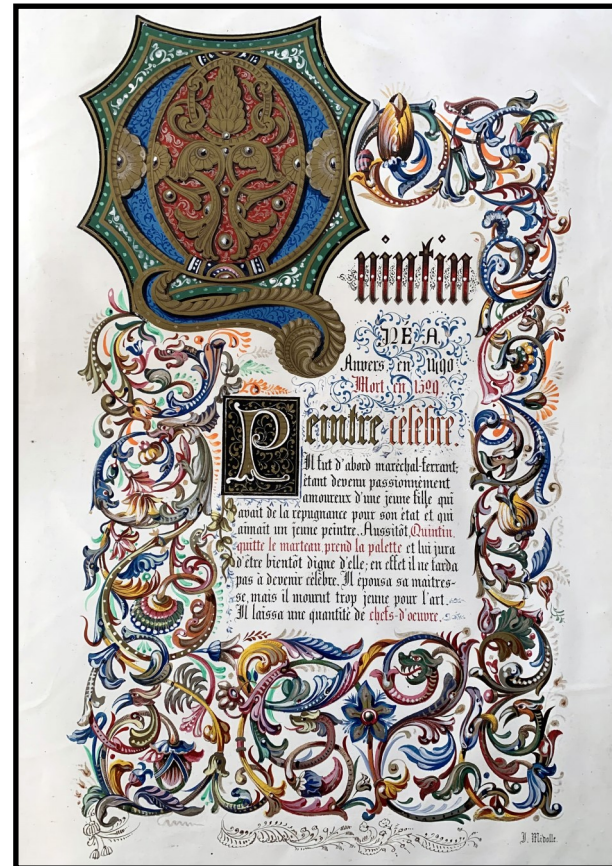 Quintin
NÉ A
Anvers en 1490
Mort en 1529
Peintre célèbre
Il fut d'abord maréchal-ferrant;
étant devenu passionnément
amoureux d'une jeune fille qui
avait de la répugnance pour son état et qui
aimait un jeune peintre. Aussitôt, Quintin
quitte le marteau, prend la palette et lui jura
d'être bientôt digne d'elle; en effet il ne tarda
pas à devenir célèbre. Il épousa sa maitres-
se, mais il mourut trop jeune pour l'art.
Il laissa une quantité de chefs-d'oeuvre.
J. Midolle.